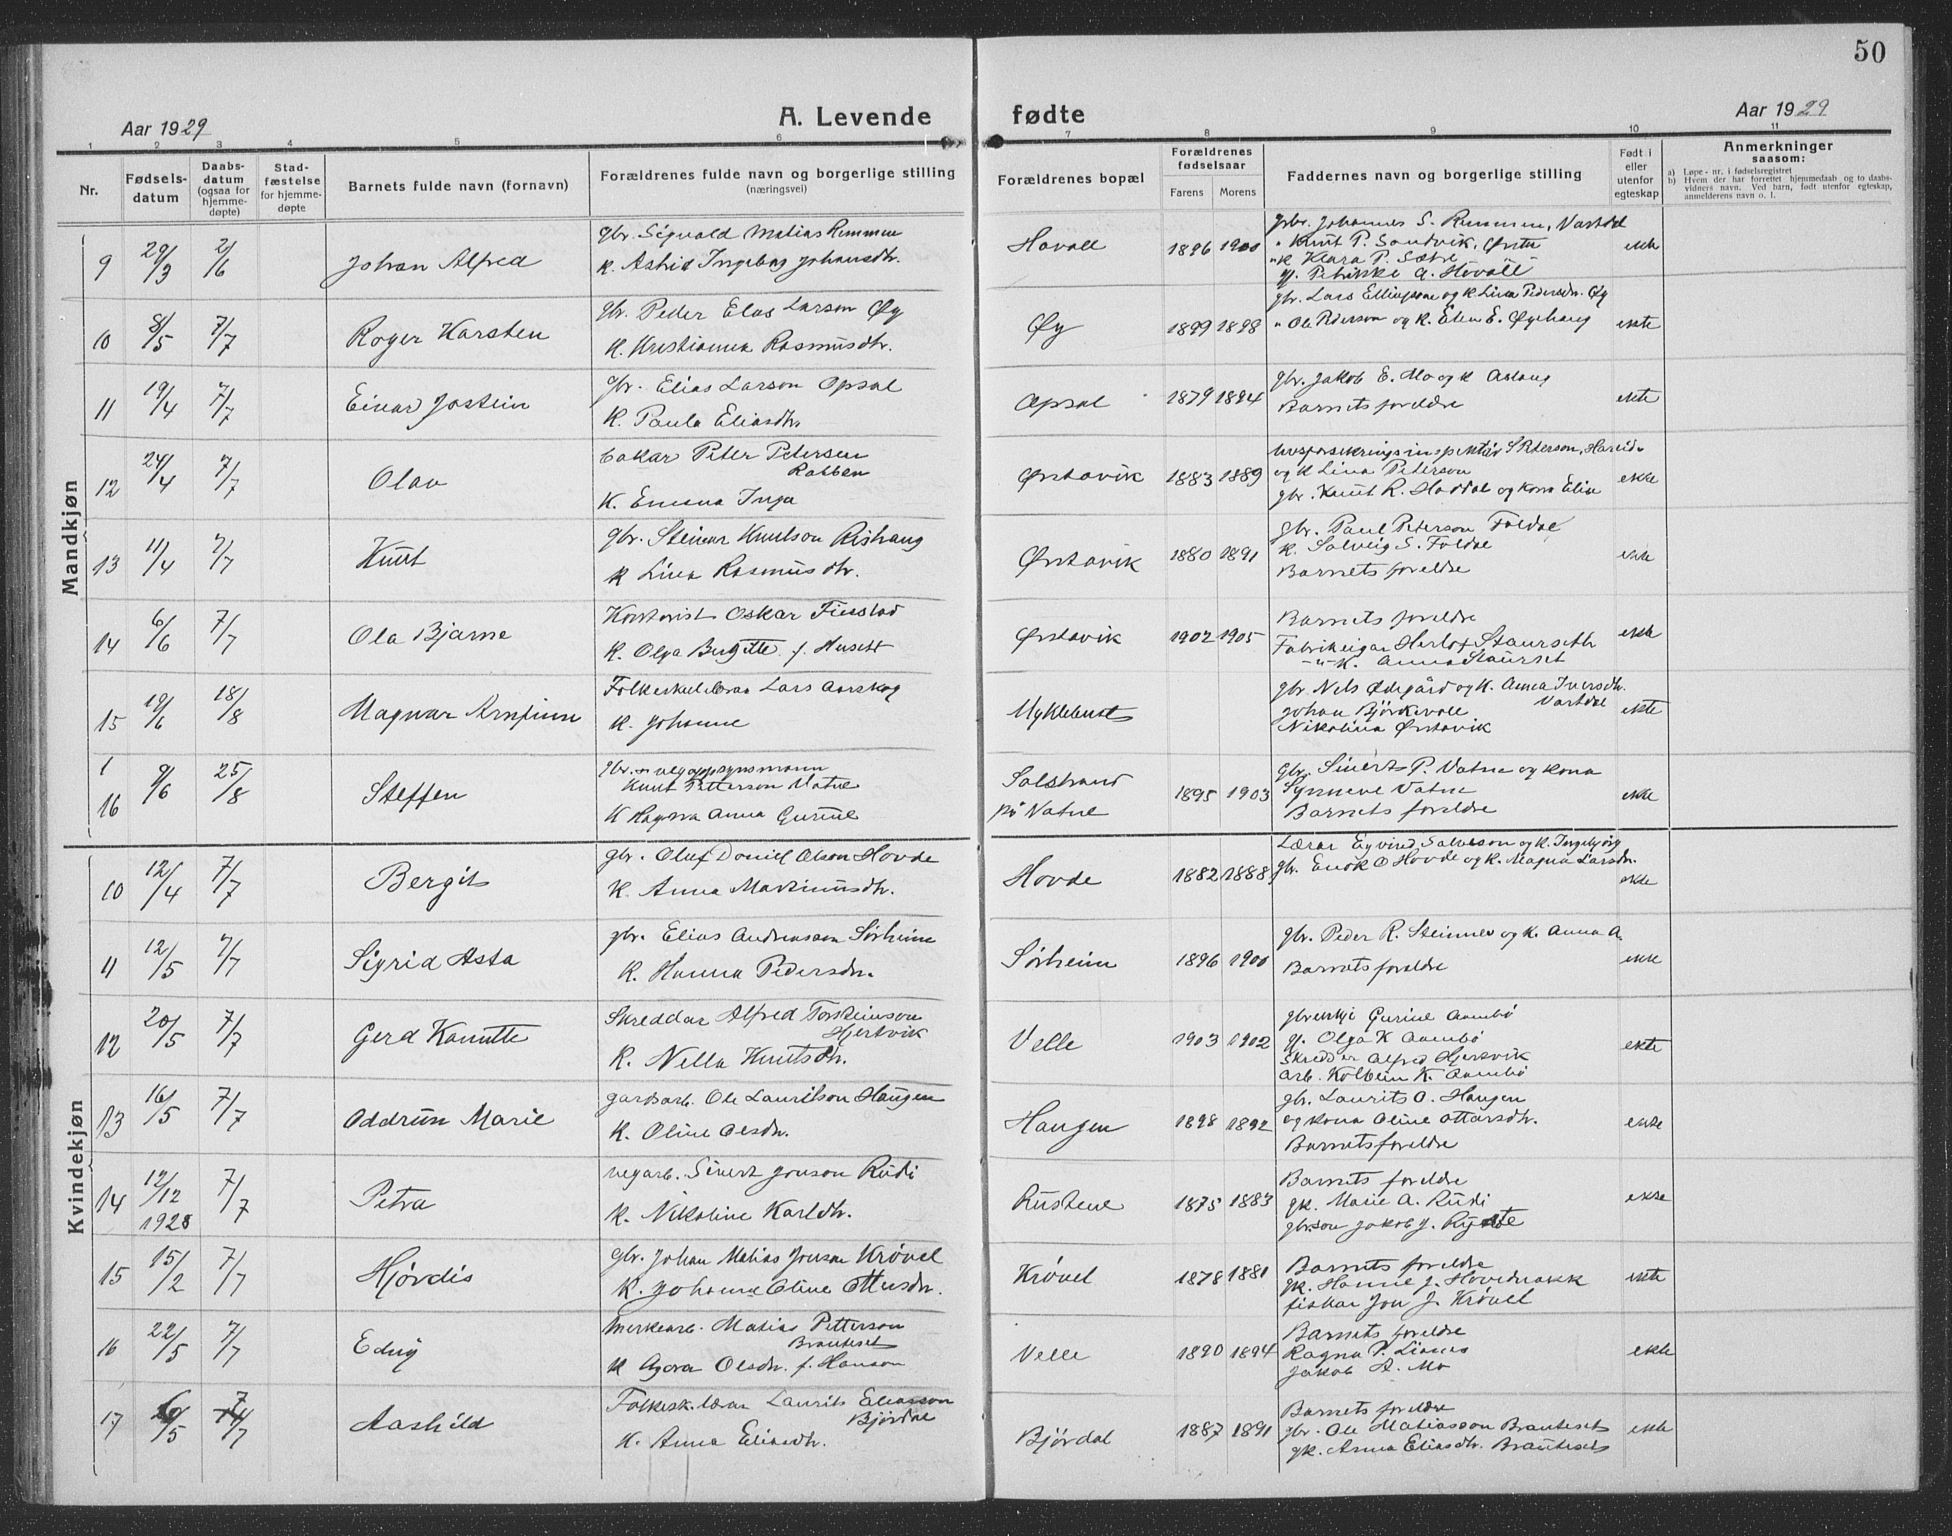 50
Aar 1929
A. Levende fødte
Aar 1929
1 2 3 4 5 6 7 8 9 10 11
Nr.
Fødsels-
datum
Daabs-
datum
(ogsaa for
hjemme-
døpte)
Stad-
fæstelse
for hjemme-
døpte
Barnets fulde navn (fornavn)
Forældrenes fulde navn og borgerlige stilling
(næringsvei)
Forældrenes bopæl
Forældrenes
fødselsaar
Farens Morens
Faddernes navn og borgerlige stilling
Født i
eller
utenfor
egteskap
Anmerkninger
saasom:
a) Løpe-nr. i fødselsregistret
b) Hvem der har forrettet hjemmedaab og to daabs-
vidners navn. Ved barn, født utenfor egteskap,
anmelderens navn o. l.
Mandkjøn
9 29/3 2/6 Johan Alfred
gbr. Sigvald Matias Remmen
k. Astrid Ingebog Johansdtr.
Hovall 1896 1900
gbr. Johannes S. Remmen, Vartdal
" Knut P. Sandvik, Ørsta
"k Klara P. Sætre
gj. Petrikke A. Hovall
ekte
10 8/5 7/7 Roger Karsten
gbr. Peder Elas Larson Øy
k. Kristianna Rasmusdtr.
Øy 1899 1898
gbr. Lars Ellingsone og k. Lina Pedersdtr. Øy
" Ole Pederson og k. Elen E. Øyehaug
ekte
11 19/4 7/7 Einar Jostein
gbr. Elias Larson Opsal
k. Paula Eliasdtr.
Opsal 1879 1894
gbr. Jakob E. Mo og k Aslaug
Barnets foreldre
ekte
12 24/4 7/7 Olav
bakar Peter Petersen
Rabben
k. Emma Inga
Ørstavik 1883 1889
S Peterson, Hareid
og k Lina Peterson
gbr. Knut R. Hovdal og kona Elin
ekte
13 11/4 7/7 Knut
gbr. Steinar Knutson Rishaug
k Lina Rasmusdtr.
Ørstavik 1880 1891
gbr. Paul Peterson Foldal
k. Solveig S. Foldal
Barnets foreldre
ekte
14 6/6 7/7 Ola Bjarne
Kontorist Oskar Fivestad
k. Olga Bergitte f. Husett
Ørstavik 1902 1905
Barnets foreldre
Fabrikeigar Herlof Staurseth
-"- k. Anna Staurset
ekte
15 19/6 18/8 Magnar Arnfinn
Folkeskulelærar Lars Aarskog
k. Johanne
Myklebust
gbr. Nels Ødegård og k. Anna Iversdtr.
Vartdal
Johan Bjørkevoll
Nikolina Ørstavik
ekte
1
16 9/6 25/8 Steffen
gbr. - vegoppsynsmann
Knut Petterson Vatne
k Ragna Anna Gurine
Solstrand
på Vatne
1895 1903
gbr. Sivert P. Vatne og kona
Synneve Vatne
Barnets foreldre
ekte
Kvindekjøn
10 12/4 7/7 Bergit
gbr. Oluf Daniel Olson Hovde
k. Anna Martinusdtr.
Hovde 1882 1888
Lærar Eyvind Salveson og k. Ingebjørg
gbr. Enok O Hovde og k. Magna Larsdtr.
ekte
11 12/5 7/7 Sigrid Asta
gbr. Elias Andreasson Sørheim
k. Hanna Pedersdtr.
Sørheim 1896 1900
gbr. Peder R. Steinnes og k. Anna A.
Barnets foreldre
ekte
12 20/5 7/7 Gerd Kanutte
Skreddar Alfred Torsteinson
Hjersvik
k. Nella Knutsdtr.
Velle 1903 1902
gbrenkje Gurine Aambø
gj. Olga K Aambø
Skredder Alfred Hjersvik
arb. Kolbein K. Aambø
ekte
13 16/5 7/7 Oddrun Marie
gardsarb. Ole Lauritson Haugen
k. Oline Olsdtr.
Haugen 1898 1892
gbr. Laurits O. Haugen
og kona Oline Ottarsdtr.
Barnets foreldre
ekte
14 12/12 1928 7/7 Petra
vegarb. Sivert Jonson Rudi
k. Nikoline Karldtr.
Rustene 1875 1883
Barnets foreldre
gk. Marie A. Rudi
gbrson Jakob J.
ekte
15 15/2 7/7 Hjørdis
gbr. Johan Matias Jonson Krøvel
k. Johanne Oline Ottusdtr.
Krøvel 1878 1881
Barnets foreldre
gk. Hanne J. Hovdenakk
fiskar Jon J. Krøvel
ekte
16 22/5 7/7 Edny
merkearb. Matias Petterson
Brauteset
k Agora Olsdtr. f. Hanson
Velle 1890 1894
Barnets foreldre
Ragna P. Lianes
Jakob A. Mo
ekte
17 6/5 7/7 Aashild
Folkesk.lærar Laurits Eliasson
Bjørdal
k. Anna Eliasdtr.
Bjørdal 1887 1891
Barnets foreldre
gbr. Ole Matiasson Brauteset
gk. Anna Eliasdtr. Brauteset
ekte